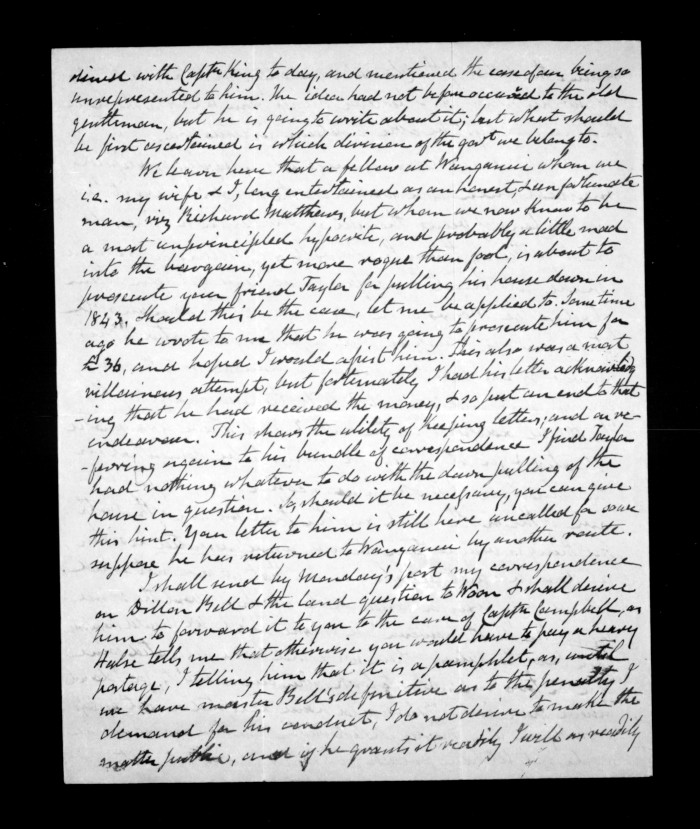 dined with Captn King to day, and mentioned the case of our being so
unrepresented to him. The idea had not before occurred to the old
gentleman, but he is going to write about it; but what should
be first ascertained is which division of the govt we belong to.
We learn here that a fellow at Wanganui whom we
i.e. my wife & I, long entertained as an honest, & unfortunate
man, viz Richard Matthews, but whom we now know to be
a most unprincipled hypocrite, and probably a little mad
into the bargain, yet more rogue than fool, is about to
prosecute your friend Taylor for pulling his house down in
1843, should this be the case, let me be applied to. Some time
ago he wrote to me that he was going to prosecute him for
£36, and hoped I would assist him. This also was a most
villainous attempt, but fortunately I had his letter acknowledg
-ing that he had received the money, & so put an end to that
endeavour. This shows the utility of keeping letters, and on re-
-ferring again to his bundle of correspondence I find Taylor
had nothing whatever to do with the down pulling of the
house in question. So should it be necessary, you can give
this hint. Your letter to him is still here uncalled for so we
suppose he has returned to Wanganui by another route.
I shall send by Monday's post my correspondence
on Dillon Bell & the land question to Woon & shall desire
him to forward it to you to the care of Captn Campbell, as
Halse tells me that otherwise you would have to pay a heavy
postage, I telling him that it is a pamphlet, as, until
we have master Bell's definitive as to the penalty I
demand for his conduct, I do not desire to make the
matter public, and if he grants it readily I will as readily